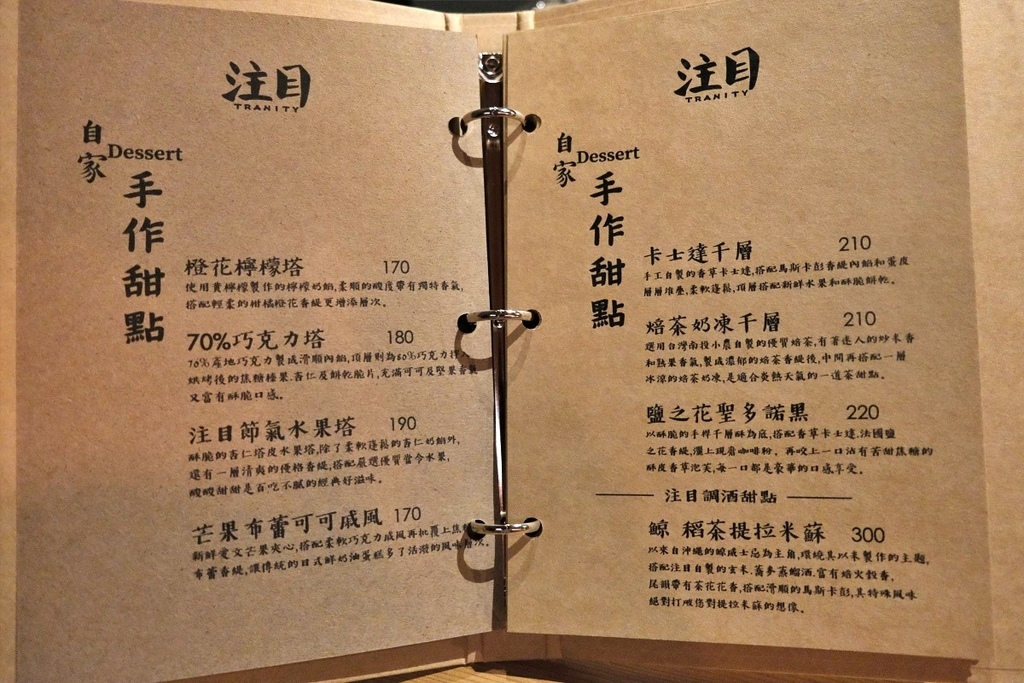 注目
TRANITY
自家
Dessert
手作甜點
橙花檸檬塔 170
使用黃檸檬製作的檸檬奶餡,柔順的酸度帶有獨特香氣,
搭配輕柔的柑橘橙花香緹更增添層次。
70%巧克力塔 180
70%產地巧克力製成滑順內餡,頂層則為80%巧克力
烘烤後的焦糖榛果.杏仁及餅乾脆片,充滿可可及堅果香氣
又富有酥脆口感。
注目節氣水果塔 190
酥脆的杏仁塔皮水果塔,除了柔軟蓬鬆的杏仁奶餡外,
還有一層清爽的優格香緹,搭配嚴選優質當令水果,
酸酸甜甜是百吃不膩的經典好滋味。
芒果布蕾可可戚風 170
新鮮愛文芒果夾心,搭配柔軟巧克力戚風再批覆上焦糖
布蕾香緹,讓傳統的日式鮮奶油蛋糕多了活潑的風味層次。
注目
TRANITY
自家
Dessert
手作甜點
卡士達千層 210
手工自製的香草卡士達,搭配馬斯卡彭香緹內餡和蛋皮
層層堆疊,柔軟蓬鬆,頂層搭配新鮮水果和酥脆餅乾。
焙茶奶凍千層 210
選用台灣南投小農自製的優質焙茶,有著迷人的炒米香
和熟果香氣,製成濃郁的焙茶香緹後,中間再搭配一層
冰涼的焙茶奶凍,是適合炎熱天氣的一道茶甜點。
鹽之花聖多諾黑 220
以酥脆的手桿千層酥為底,搭配香草卡士達,法國鹽
之花香緹,灑上現磨咖啡粉，再咬上一口沾有苦甜焦糖的
酥皮香草泡芙,每一口都是豪華的口感享受。
注目調酒甜點
鯨 稻茶提拉米蘇 300
以來自沖繩的鯨威士忌為主角,環繞其以米製作的主題,
搭配注目自製的玄米.蕎麥蒸餾酒,富有焙火穀香,
尾韻帶有茶花花香,搭配滑順的馬斯卡彭,具特殊風味
絕對打破您對提拉米蘇的想像。